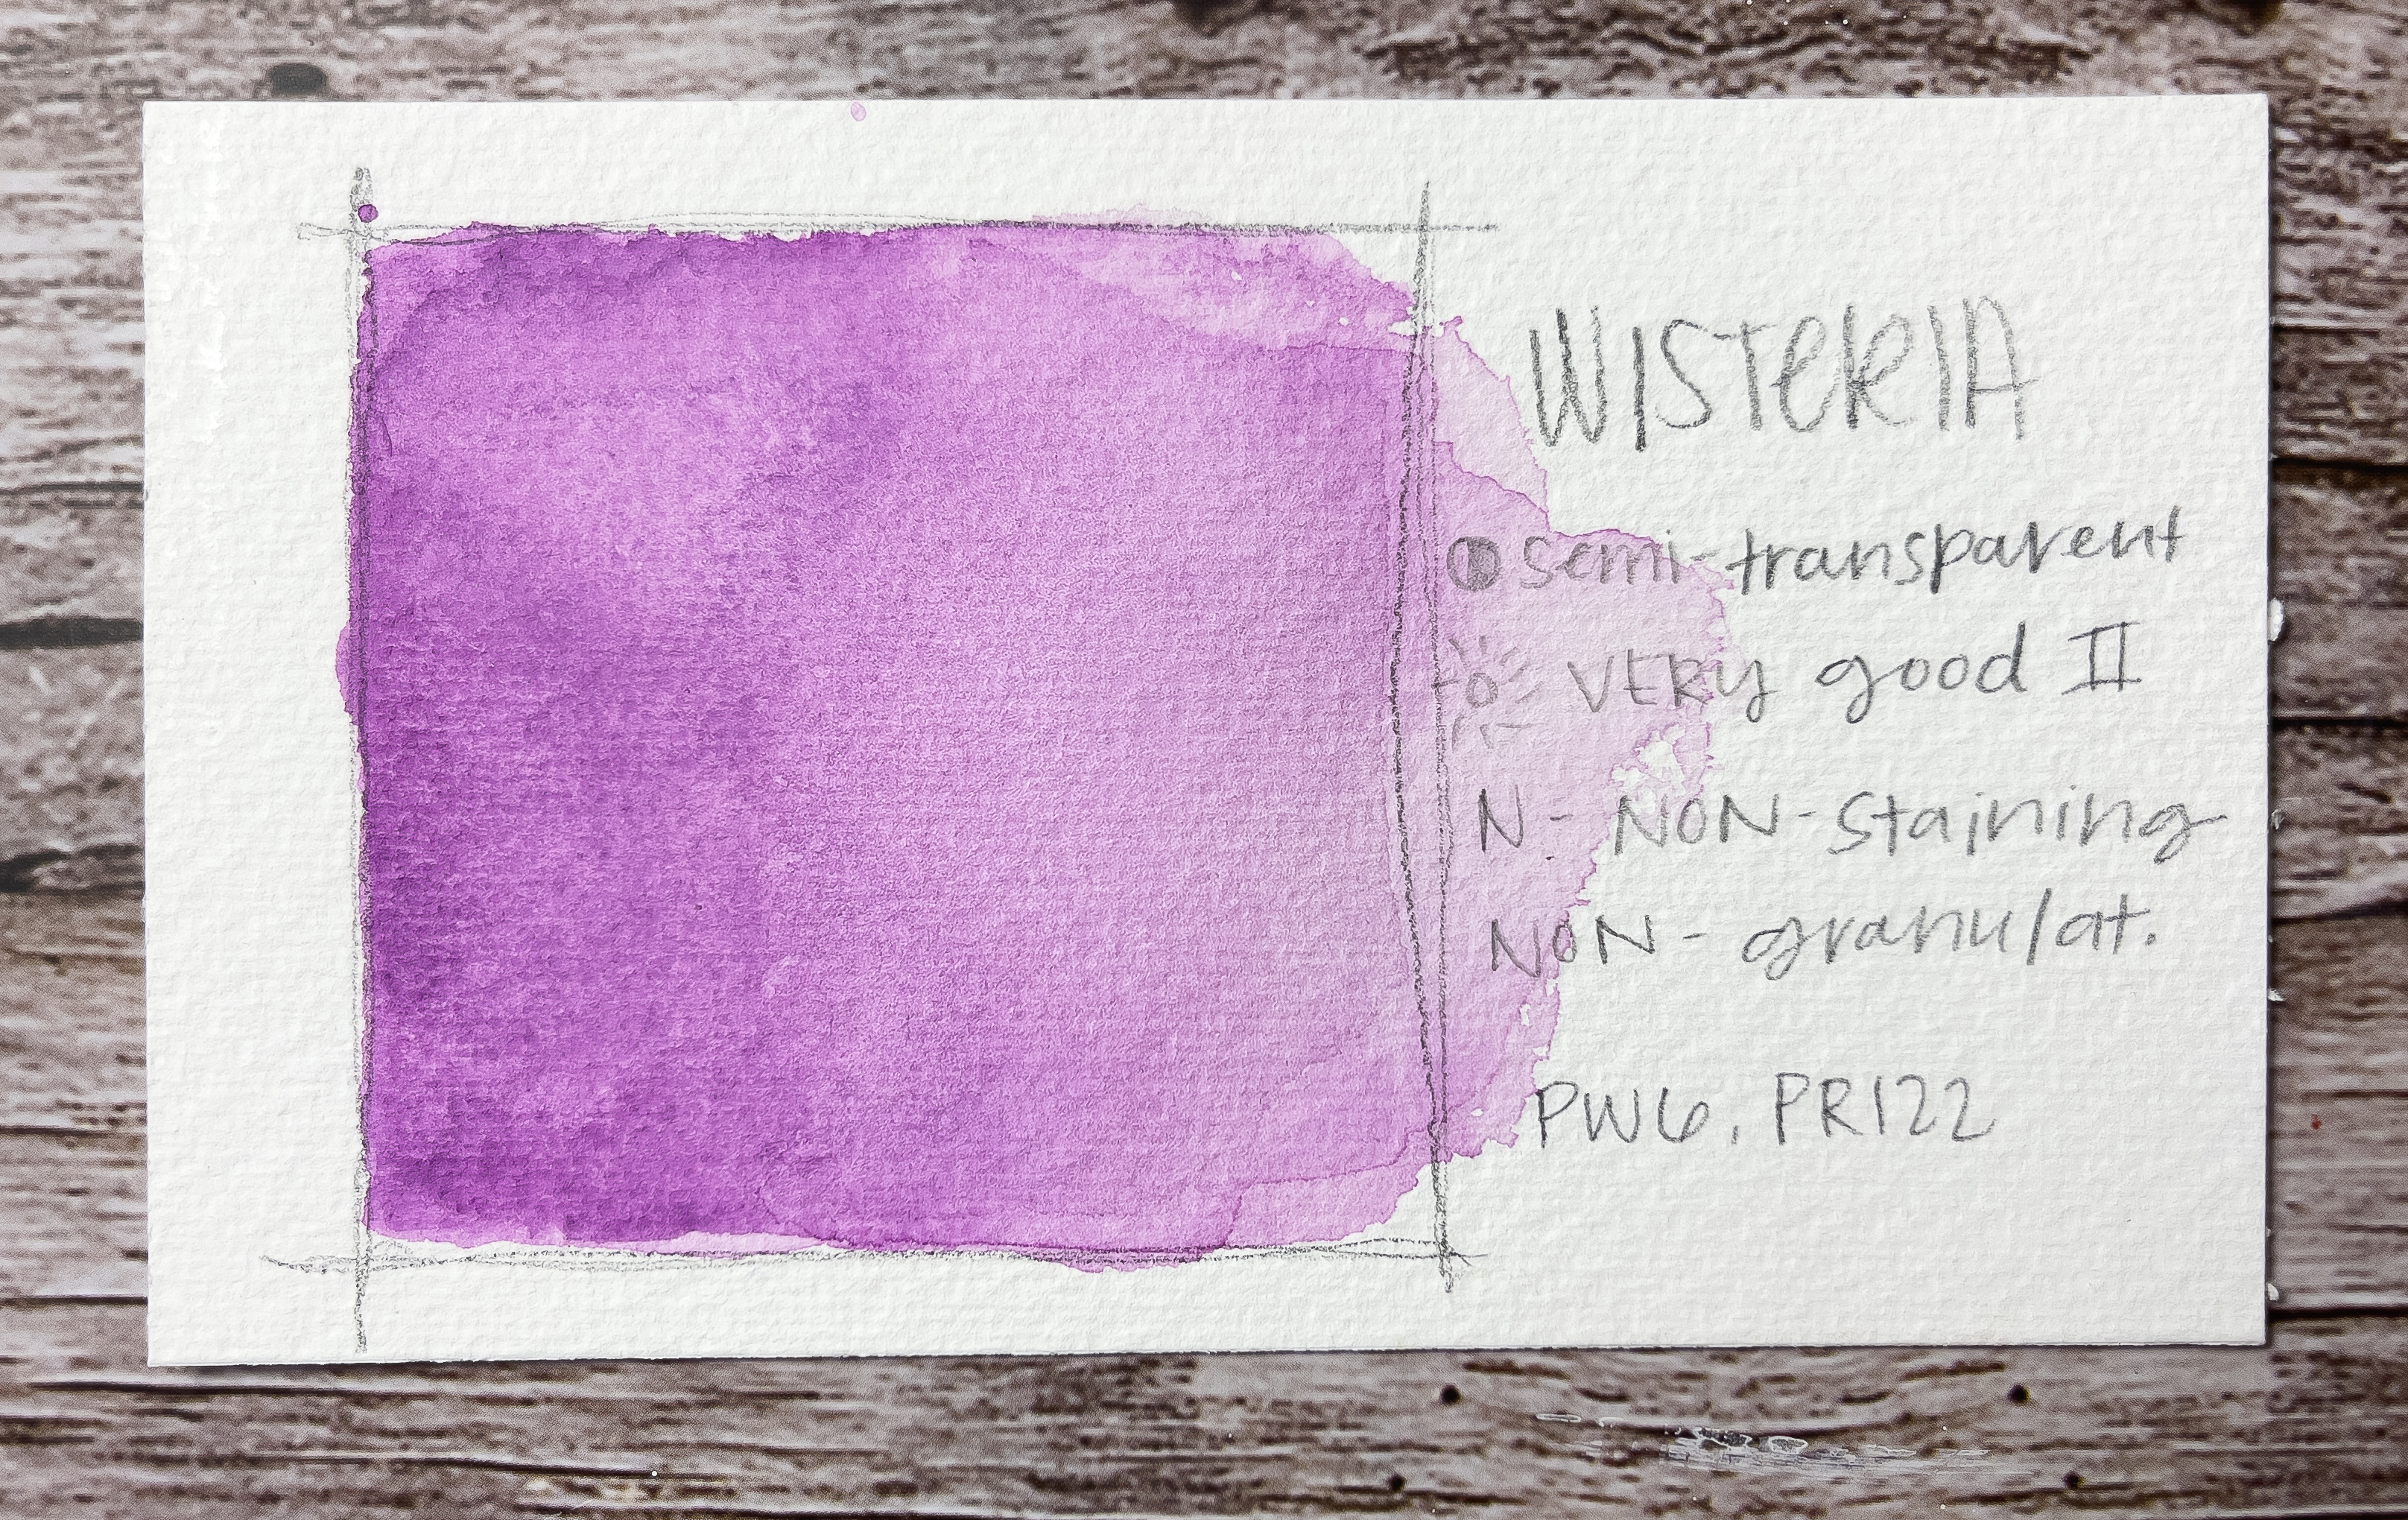 WISTERIA
semi-transparent
VERY good II
N - NON-staining
NON- granulat.
PW6, PR122